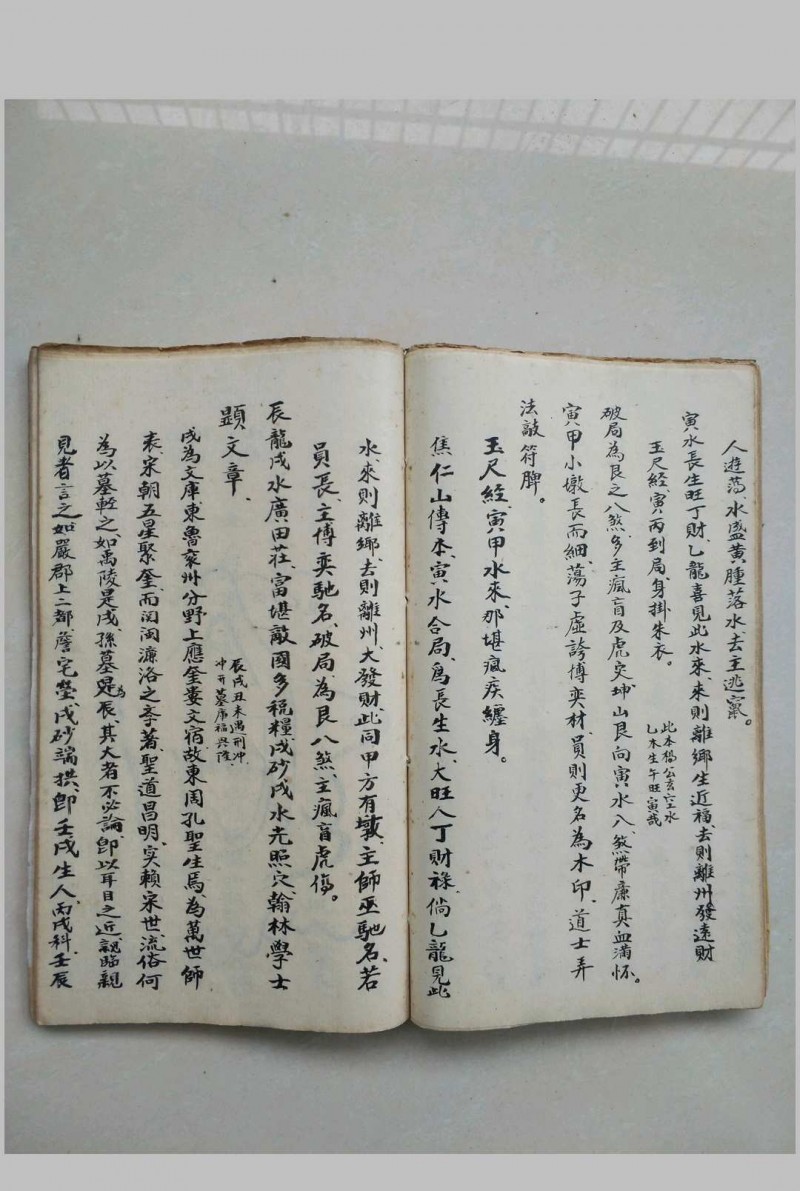 人遊蕩、水盛黄腫落水、去主逃竄。
寅水長生旺丁財、乙龍喜見此水來、來則離鄉生近福、去則離州發遠財
玉尺經、寅丙到局、身掛朱衣。
此本楊公玄空水
乙木生午旺寅哉
破局為艮之八煞、多主瘋盲及虎災、坤山艮向寅水入、煞帶廉貞血滿怀。
寅甲小墩長而細、蕩子虛誇博奕材、員則更名為木印、道士弄
法敲符脾。
玉尺經、寅甲水來、那堪瘋疾纏身。
焦仁山傳本、寅水合局、為長生水、大旺人丁財祿、倘乙龍見此
水、來則離鄉、去則離州、大發財、此同甲方有墩、主師巫馳名、若
員長、主博奕馳名、破局為艮八煞、主瘋盲虎傷。
辰龍戌水廣田莊、富堪敵國多稅糧、戌砂戌水光照穴、翰林學士
顕文章、
辰戌丑未遇刑冲、
冲開墓庫福興隆
戌為文庫、東魯兗州分野、上應奎婁文宿、故東周孔聖生焉、為萬世師
表、宋朝五星聚奎、而関閩濂洛之季著、聖道昌明、实賴宋世、流俗何
為以墓輕之、如禹陵是戌、孫墓是為辰、其大者不必論、卽以耳目之近、親臨親
見者言之、如嚴郡上二都、詹宅塋、戌砂端拱、卽壬戌生人、丙戌科、壬辰